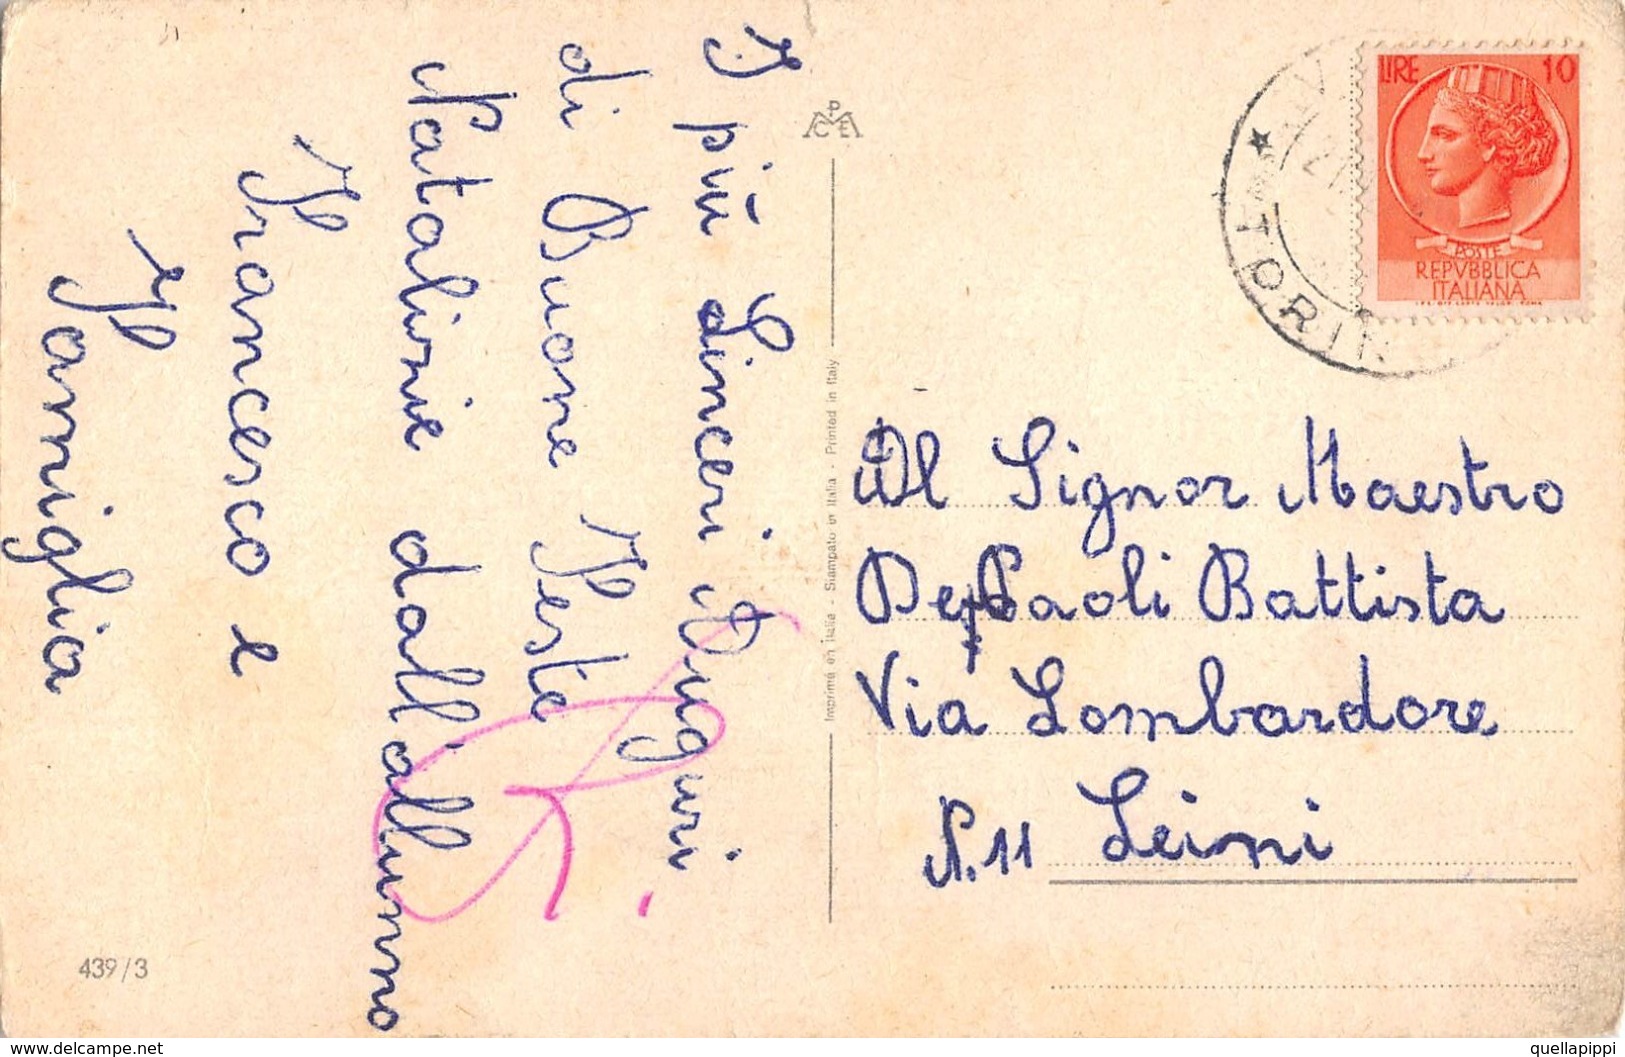 I più Sinceri Auguri
di Buone Feste
Natalizie dall'allunno
Francesco e
Famiglia
439/3
PMCE
Imprimé en Italie - Stampato in Italia - Printed in Italy
LIRE 10
POSTE
REPVBBLICA
ITALIANA
TORIN
Al Signor Maestro
De Paoli Battista
Via Lombardore
N. 11 Leini
www.delcampe.net
quellapippi